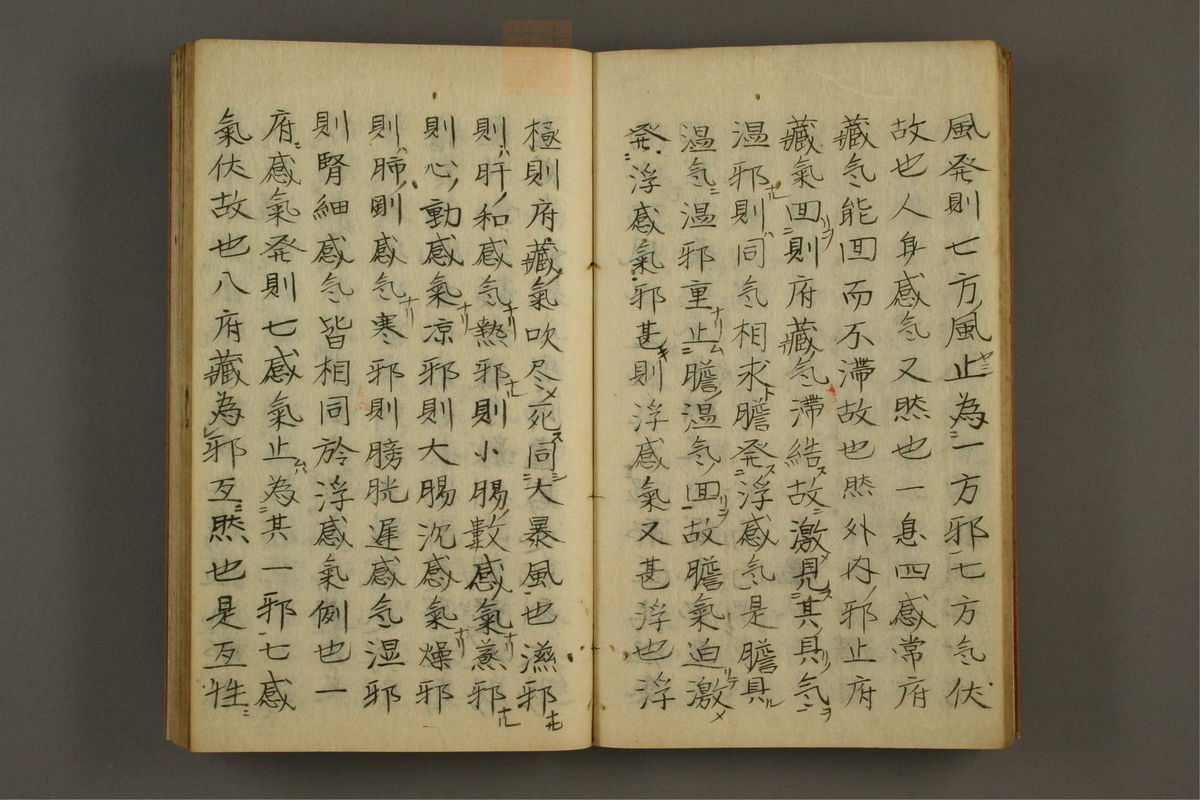 風発則七方風止為一方邪七方氣伏
故也人身感氣又然也一息四感常府
藏氣能回而不滯故也然外内邪止府
藏氣回則府藏氣滯結故激見其具氣
温邪則同氣相求膽発浮感氣是膽具
温氣温邪重止膽温氣回故膽氣迫激
発浮感氣邪甚則浮感氣又甚浮也浮
極則府藏氣吹尽死同大暴風也濕邪
則肝和感氣熱邪則小腸數感氣蒸邪
則心動感氣凉邪則大腸沉感氣燥邪
則肺剛感氣寒邪則膀胱遲感氣湿邪
則腎細感氣皆相同於浮感氣例也一
府感氣発則七感氣止為其一邪七感
氣伏故也八府藏為邪互然也是互性